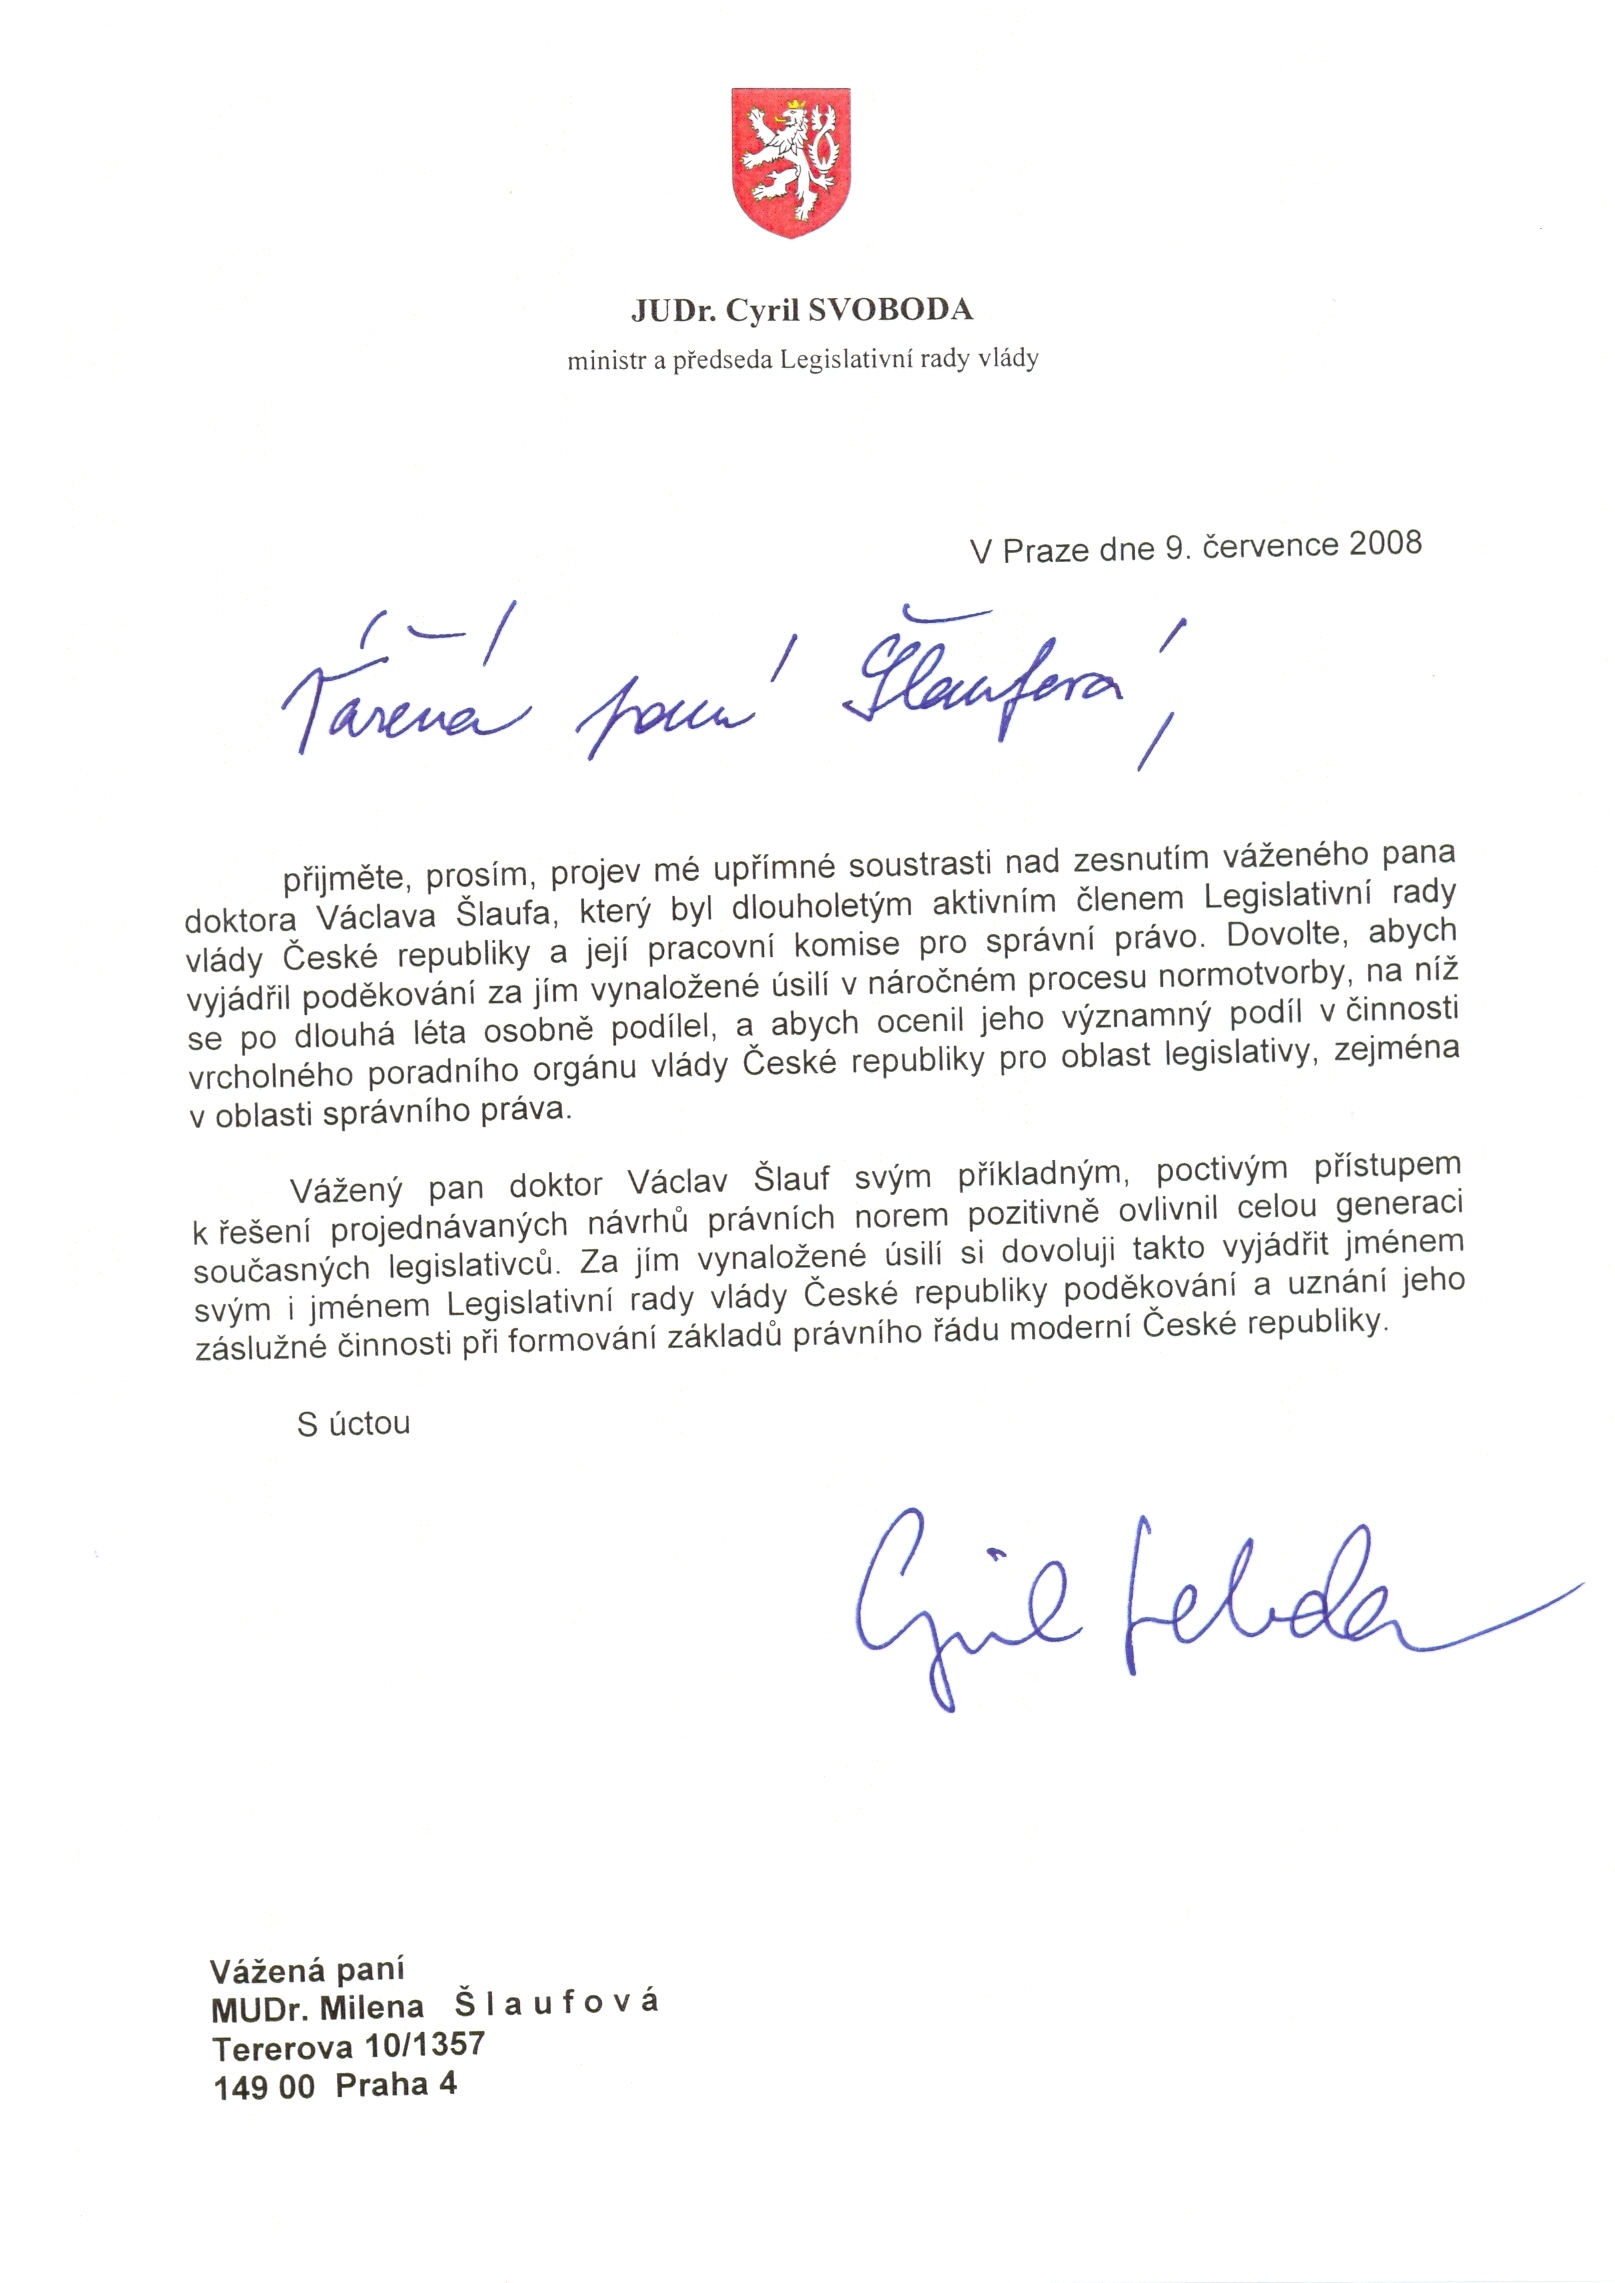 JUDr. Cyril SVOBODA
ministr a předseda Legislativní rady vlády
V Praze dne 9. července 2008
Vážená paní Šlaufová,
přijměte, prosím, projev mé upřímné soustrasti nad zesnutím váženého pana
doktora Václava Šlaufa, který byl dlouholetým aktivním členem Legislativní rady
vlády České republiky a její pracovní komise pro správní právo. Dovolte, abych
vyjádřil poděkování za jím vynaložené úsilí v náročném procesu normotvorby, na níž
se po dlouhá léta osobně podílel, a abych ocenil jeho významný podíl v činnosti
vrcholného poradního orgánu vlády České republiky pro oblast legislativy, zejména
v oblasti správního práva.
Vážený pan doktor Václav Šlauf svým příkladným, poctivým přístupem
k řešení projednávaných návrhů právních norem pozitivně ovlivnil celou generaci
současných legislativců. Za jím vynaložené úsilí si dovoluji takto vyjádřit jménem
svým i jménem Legislativní rady vlády České republiky poděkování a uznání jeho
záslužné činnosti při formování základů právního řádu moderní České republiky.
S úctou
Cyril Svoboda
Vážená paní
MUDr. Milena Š l a u f o v á
Tererova 10/1357
149 00 Praha 4